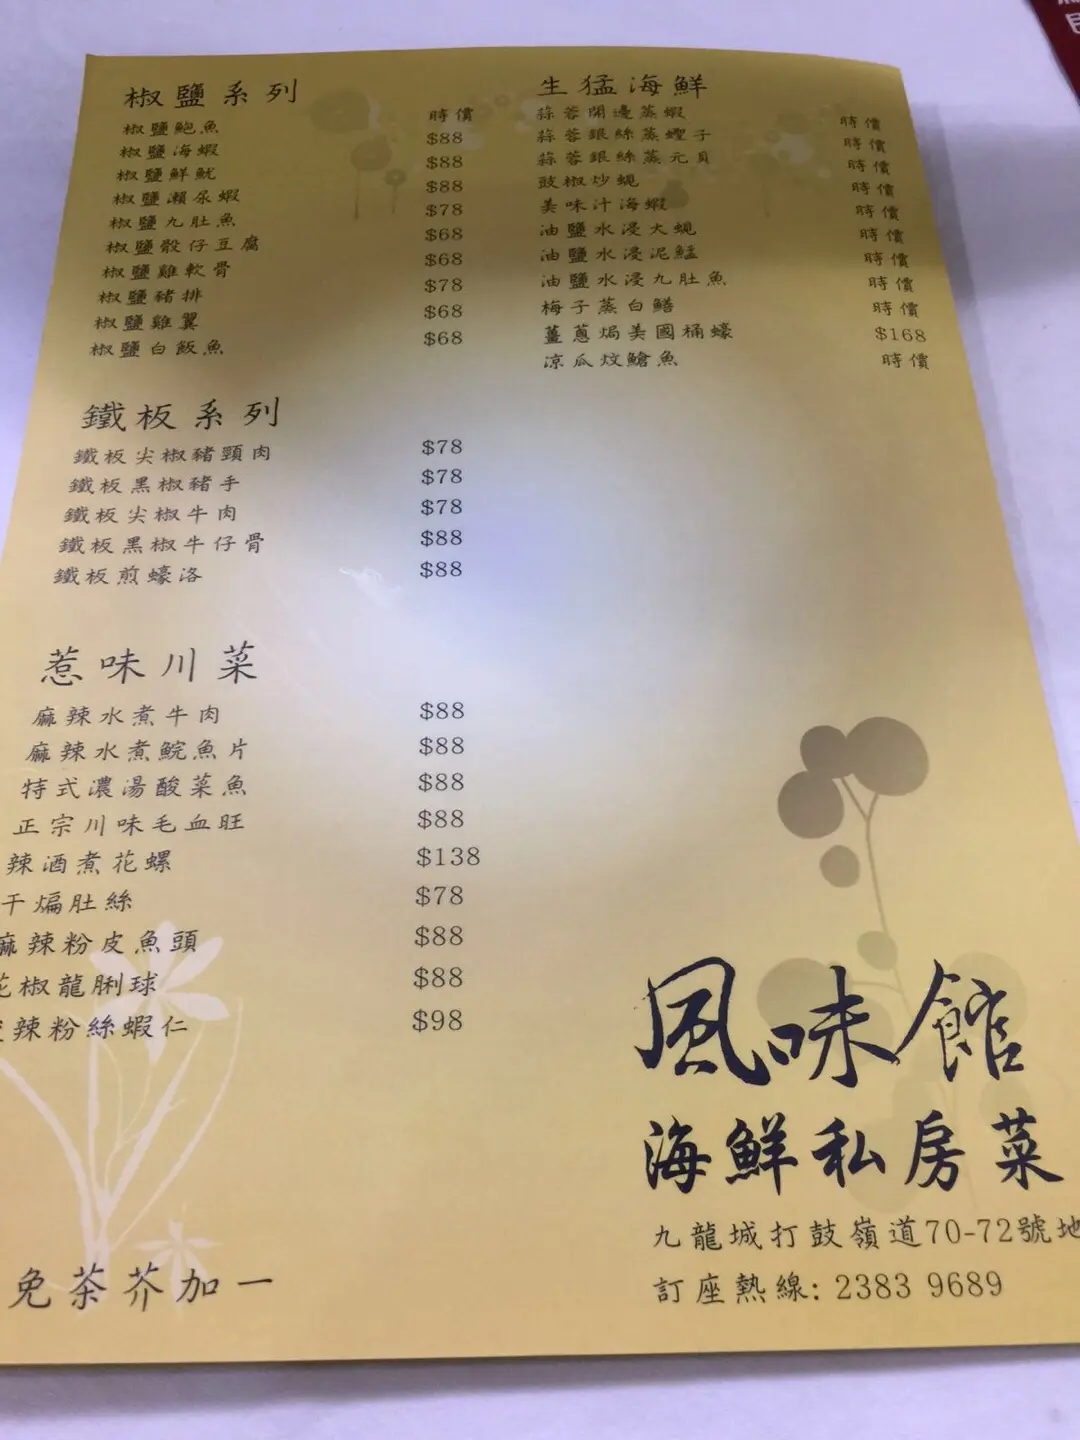 椒鹽系列
椒鹽鮑魚 時價
椒鹽海蝦 $88
椒鹽鮮魷 $88
椒鹽瀨尿蝦 $88
椒鹽九肚魚 $78
椒鹽骰仔豆腐 $68
椒鹽雞軟骨 $68
椒鹽豬排 $78
椒鹽雞翼 $68
椒鹽白飯魚 $68
鐵板系列
鐵板尖椒豬頸肉 $78
鐵板黑椒豬手 $78
鐵板尖椒牛肉 $78
鐵板黑椒牛仔骨 $88
鐵板煎蠔洛 $88
惹味川菜
麻辣水煮牛肉 $88
麻辣水煮鯇魚片 $88
特式濃湯酸菜魚 $88
正宗川味毛血旺 $88
辣酒煮花螺 $138
干煸肚絲 $78
麻辣粉皮魚頭 $88
花椒龍脷球 $88
辣粉絲蝦仁 $98
免茶芥加一
生猛海鮮
蒜蓉開邊蒸蝦 時價
蒜蓉銀絲蒸蟶子 時價
蒜蓉銀絲蒸元貝 時價
豉椒炒蜆 時價
美味汁海蝦 時價
油鹽水浸大蜆 時價
油鹽水浸泥鯭 時價
油鹽水浸九肚魚 時價
梅子蒸白鱔 時價
薑蔥焗美國桶蠔 $168
涼瓜炆鱠魚 時價
風味館
海鮮私房菜
九龍城打鼓嶺道70-72號地
訂座熱線: 2383 9689